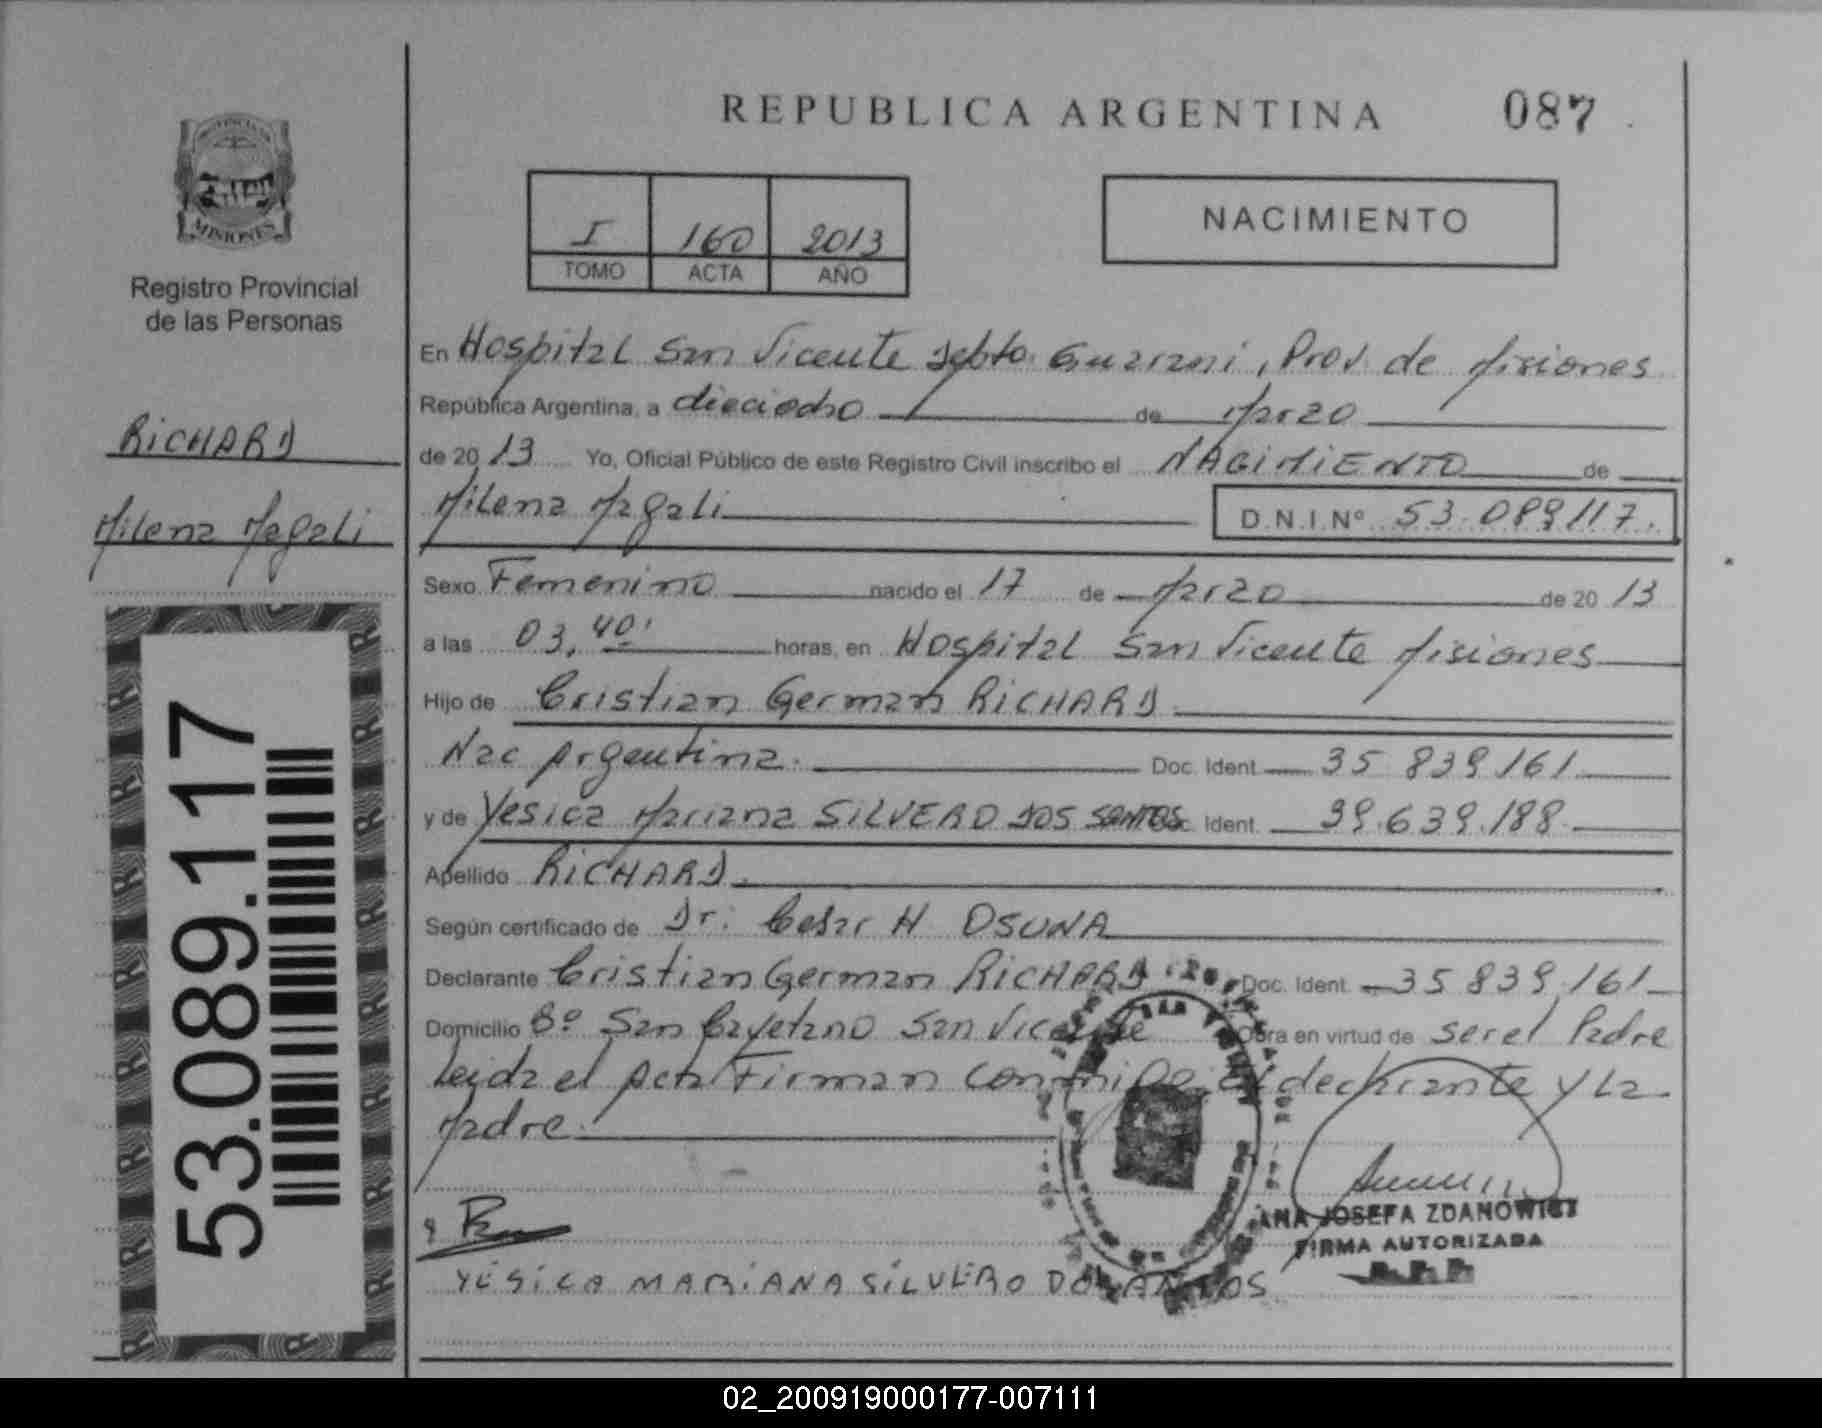 REPUBLICA ARGENTINA
087
PROVINCIA DE
MISIONES
Registro Provincial
de las Personas
RICHARD
Milena Magali
53.089.117
I 160 2013
TOMO ACTA AÑO
NACIMIENTO
En Hospital San Vicente Depto. Guarani, Prov. de Misiones
República Argentina, a dieciocho de Marzo
de 2013 Yo, Oficial Público de este Registro Civil inscribo el NACIMIENTO de
Milena Magali D.N.I.Nº 53.089.117.
Sexo Femenino nacido el 17 de Marzo de 2013
a las 03,40' horas, en Hospital San Vicente Misiones
Hijo de Cristian German RICHARD
Nac Argentina. Doc. Ident. 35 839 161
y de Yesica Mariana SILVERO DOS SANTOS Doc. Ident. 39.639.188
Apellido RICHARD
Según certificado de Dr. Cesar H OSUNA
Declarante Cristian German RICHARD Doc. Ident. 35 839.161
Domicilio Bº San Cayetano San Vicente Obra en virtud de ser el Padre
Leida el Acta Firman conmigo, el declarante y La
Madre.
ANA JOSEFA ZDANOWICZ
FIRMA AUTORIZADA
YESICA MARIANA SILVERO DOS SANTOS
02_200919000177-007111